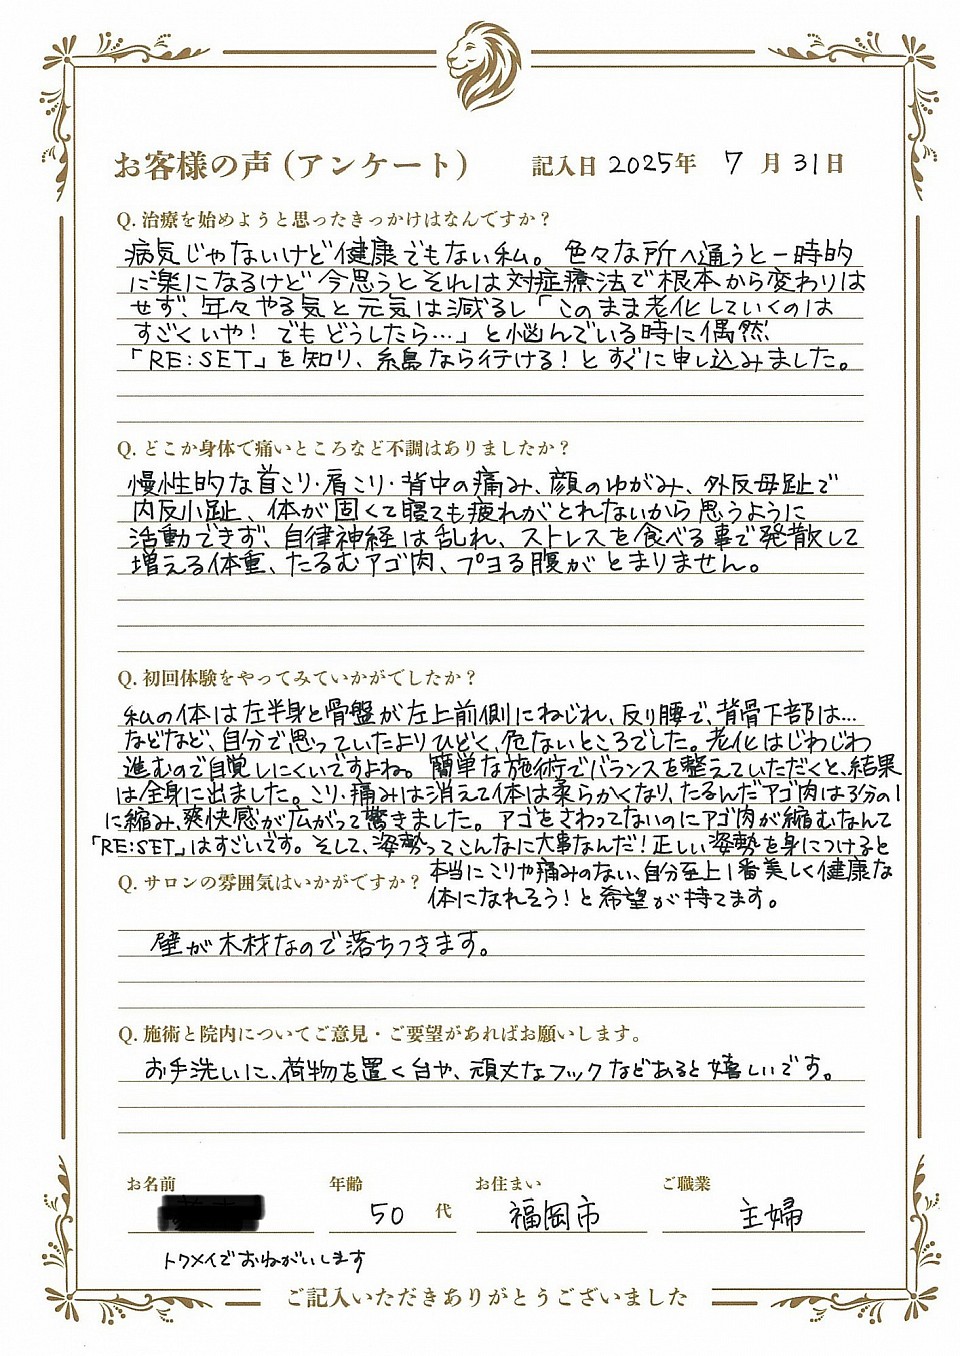 お客様の声(アンケート) 記入日 2025年 7月31日
Q. 治療を始めようと思ったきっかけはなんですか?
病気じゃないけど健康でもない私。色々な所へ通うと一時的
に楽になるけど今思うとそれは対症療法で根本から変わりは
せず、年々やる気と元気は減るし「このまま老化していくのは
すごくいや!でもどうしたら…」と悩んでいる時に偶然
「RE:SET」を知り、糸島なら行ける!とすぐに申し込みました。
Q. どこか身体で痛いところなど不調はありましたか?
慢性的な首こり・肩こり・背中の痛み、顔のゆがみ、外反母趾で
内反小趾、体が固くて寝ても疲れがとれないから思うように
活動できず、自律神経は乱れ、ストレスを食べる事で発散して
増える体重、たるむアゴ肉、プヨる腹がとまりません。
Q. 初回体験をやってみていかがでしたか?
私の体は左半身と骨盤が左上前側にねじれ、反り腰で、背骨下部は…
などなど、自分で思っていたよりひどく、危ないところでした。老化はじわじわ
進むので自覚しにくいですよね。簡単な施術でバランスを整えていただくと、結果
は全身に出ました。こり・痛みは消えて体は柔らかくなり、たるんだアゴ肉は3分の1
に縮み、爽快感が広がって驚きました。アゴをさわってないのにアゴ肉が縮むなんて
「RE:SET」はすごいです。そして、姿勢ってこんなに大事なんだ!正しい姿勢を身につけると
本当にこりや痛みのない、自分至上1番美しく健康な
体になれそう!と希望が持てます。
Q. サロンの雰囲気はいかがですか?
壁が木材なので落ちつきます。
Q. 施術と院内についてご意見・ご要望があればお願いします。
お手洗いに、荷物を置く台や、頑丈なフックなどあると嬉しいです。
お名前 年齢 お住まい ご職業
50代 福岡市 主婦
トクメイでおねがいします
ご記入いただきありがとうございました